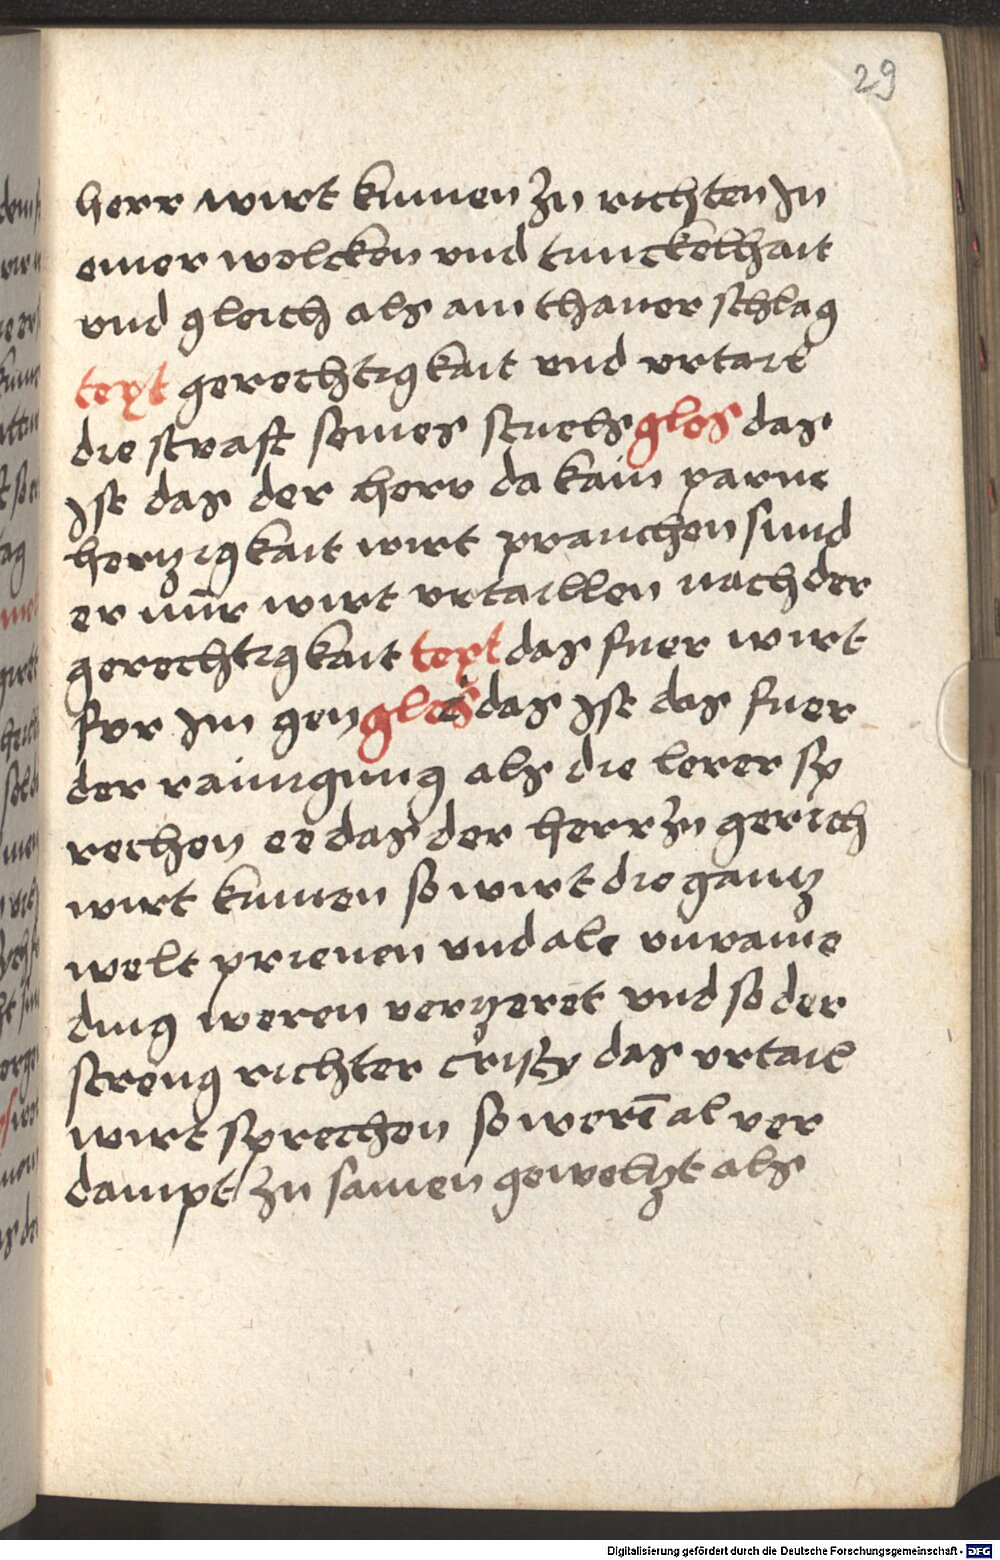 29
herr wirt kumen zu richten In
einer wolcken vnd tunckelhait
vnd gleich als ain thaner schlag
text gerechtigkait vnd vrtail
die straff seines stuels glos das
Ist das der herr da kain parm
herczigkait wirt prauchen sund
er nur wirt vrtaillen nach der
gerechtigkait text das fuer wirt
for Im gen glos das Ist das fuer
der rainigung als die lerer sp
rechen ee das der herr zu gerich
wirt kumen so wirt die gantz
welt prienen vnd ale vnraine
ding weren verzeret vnd so der
streng richter cristy das vrtail
wirt sprechen so werē al ver
dampt zu samen gewelzt als
Digitalisierung gefördert durch die Deutsche Forschungsgemeinschaft - DFG